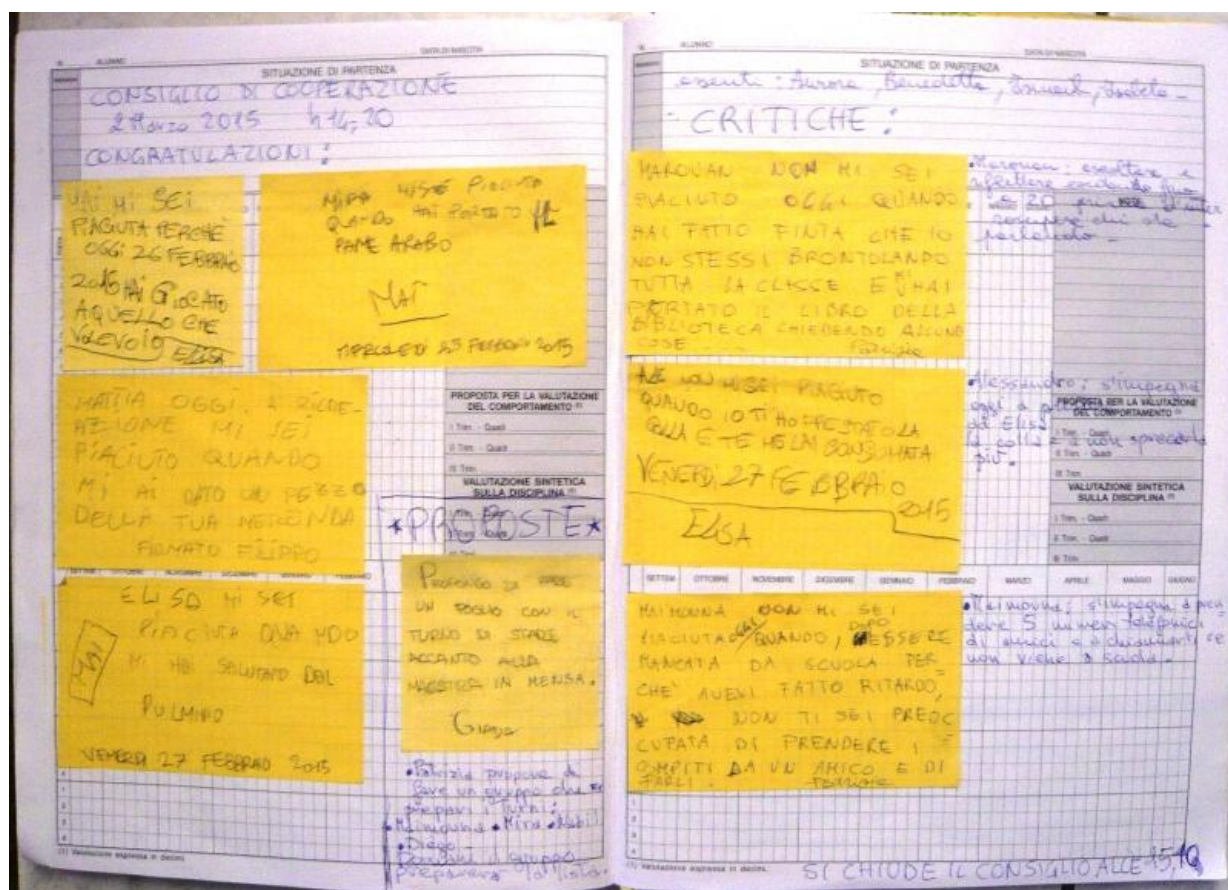 N. ALUNNO DATA DI NASCITA
SITUAZIONE DI PARTENZA
CONSIGLIO DI COOPERAZIONE
2 Marzo 2015 h 14,20
CONGRATULAZIONI:
MAI MI SEI
PIACIUTA PERCHÉ
OGGI 26 FEBBRAIO
2015 HAI GIOCATO
A QUELLO CHE
VOLEVO IO ELISA
MIRA MI SEI PIACIUTA
QUANDO HAI PORTATO IL
PANE ARABO
MAI
MERCOLEDÌ 25 FEBBRAIO 2015
MATTIA OGGI, A RICRE-
AZIONE MI SEI
PIACIUTO QUANDO
MI AI DATO UN PEZZO
DELLA TUA MERENDA
FIRMATO FILIPPO
PROPOSTA PER LA VALUTAZIONE
DEL COMPORTAMENTO (1)
I Trim. - Quadr.
II Trim. - Quadr.
III Trim.
VALUTAZIONE SINTETICA
SULLA DISCIPLINA (1)
*PROPOSTE*
SETTEM OTTOBRE NOVEMBRE DICEMBRE GENNAIO FEBBRAIO
ELISA MI SEI
PIACIUTA QUANDO
MI HAI SALUTATO DAL
PULMINO
MAI
VENERDÌ 27 FEBBRAIO 2015
PROPONGO DI FARE
UN FOGLIO CON IL
TURNO DI STARE
ACCANTO ALLA
MAESTRA IN MENSA.
GIADA
•Patrizia propone di
fare un gruppo che
prepari i turni:
•Maimouna •Mira •Nabil
•Diego
Domani il gruppo
preparerà la lista.
(1) Valutazione espressa in decimi.
N. ALUNNO DATA DI NASCITA
SITUAZIONE DI PARTENZA
assenti: Aurora, Benedetta,
CRITICHE:
MAROUAN NON MI SEI
PIACIUTO OGGI QUANDO
HAI FATTO FINTA CHE IO
NON STESSI BRONTOLANDO
TUTTA LA CLASSE E MI HAI
PORTATO IL LIBRO DELLA
BIBLIOTECA CHIEDENDO ALCUNE
COSE ....... Patrizia
•Marouan: ascoltare e
riflettere contando fino
a 20 prima d'inter
rompere chi sta
parlando -
ALE NON MI SEI PIACIUTO
QUANDO IO TI HO PRESTATO LA
COLLA E TE ME LAI CONSUMATA
VENERDÌ, 27 FEBBRAIO
2015
ELISA
•Alessandro: s'impegna
oggi a
ad Elisa
la colla e a non sprecarla
più.
PROPOSTA PER LA VALUTAZIONE
DEL COMPORTAMENTO (1)
I Trim. - Quadr.
II Trim. - Quadr.
III Trim.
VALUTAZIONE SINTETICA
SULLA DISCIPLINA (1)
I Trim. - Quadr.
II Trim. - Quadr.
III Trim.
SETTEM OTTOBRE NOVEMBRE DICEMBRE GENNAIO FEBBRAIO MARZO APRILE MAGGIO GIUGNO
MAIMOUNA NON MI SEI
PIACIUTA QUANDO, DOPO ESSERE
MANCATA DA SCUOLA PER-
CHE' AVEVI FATTO RITARDO,
NON TI SEI PREOC
CUPATA DI PRENDERE I
COMPITI DA UN AMICO E DI
FARLI. Patrizia
•Maimouna: s'impegna a pren
dere 5 numeri telefonici
di amici e a chiamarli se
non viene a scuola.
(1) Valutazione espressa in decimi.
SI CHIUDE IL CONSIGLIO ALLE 15,10